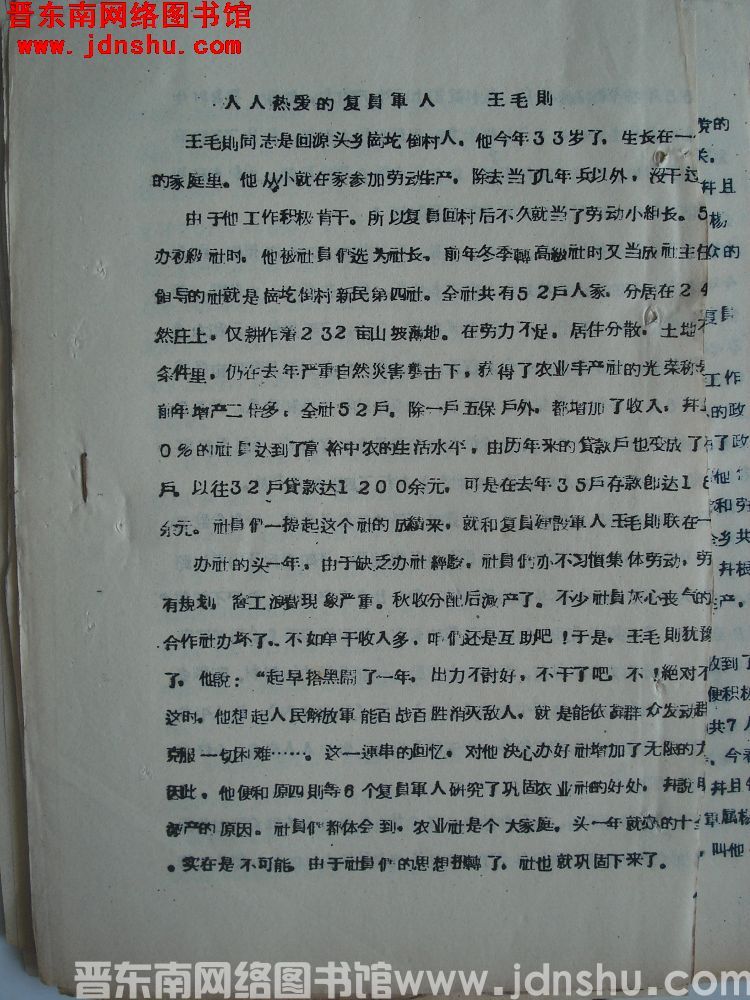 晋东南网络图书馆
www.jdnshu.com
人人热爱的复員軍人 王毛則
王毛則同志是回源头乡崗圪倒村人。他今年33岁了，生长在一
的家庭里。他从小就在家参加劳动生产，除去当了几年兵以外，沒干过
由于他工作积极肯干。所以复員回村后不久就当了劳动小組长。5
办初級社时，他被社員們选为社长。前年冬季轉高級社时又当成社主任
領导的社就是崗圪倒村新民第四社。全社共有52戶人家，分居在24
然庄上，仅耕作着232亩山坡薄地。在劳力不足，居住分散，土地不
条件里，仍在去年严重自然災害襲击下，获得了农业丰产社的光荣称号
前年增产二倍多；全社52戶。除一戶五保戶外，都增加了收入，幷
0％的社員达到了富裕中农的生活水平，由历年来的貸款戶也变成了存
戶。以往32戶貸款达1200余元，可是在去年35戶存款即达18
余元。社員們一提起这个社的成績来，就和复員建設軍人王毛則联在一
办社的头一年，由于缺乏办社經驗，社員們亦不习慣集体劳动，劳
有規划，窩工浪費現象严重。秋收分配后減产了。不少社員灰心丧气的
合作社办坏了、不如单干收入多，咱們还是互助吧！于是，王毛則犹豫
了。他說：“起早搭黑鬧了一年，出力不討好，不干了吧，不！絕对不
这时，他想起人民解放軍能百战百胜消灭敌人，就是能依靠群众发动群
克服一切困难……。这一連串的回忆，对他决心办好社增加了无限的力
因此，他便和原四則等6个复員軍人研究了巩固农业社的好处，幷說明
減产的原因。社員們都体会到。农业社是个大家庭，头一年就办的十全
。实在是不可能。由于社員們的思想扭轉了，社也就巩固下来了。
党的
长，
幷且
杨
众的
复員
工作
的政
了政
他
和劳
乡共
幷根
产。
放到了
便积极
共7人
。今
幷且
軍属杨
叫他
晋东南网络图书馆www.jdnshu.com